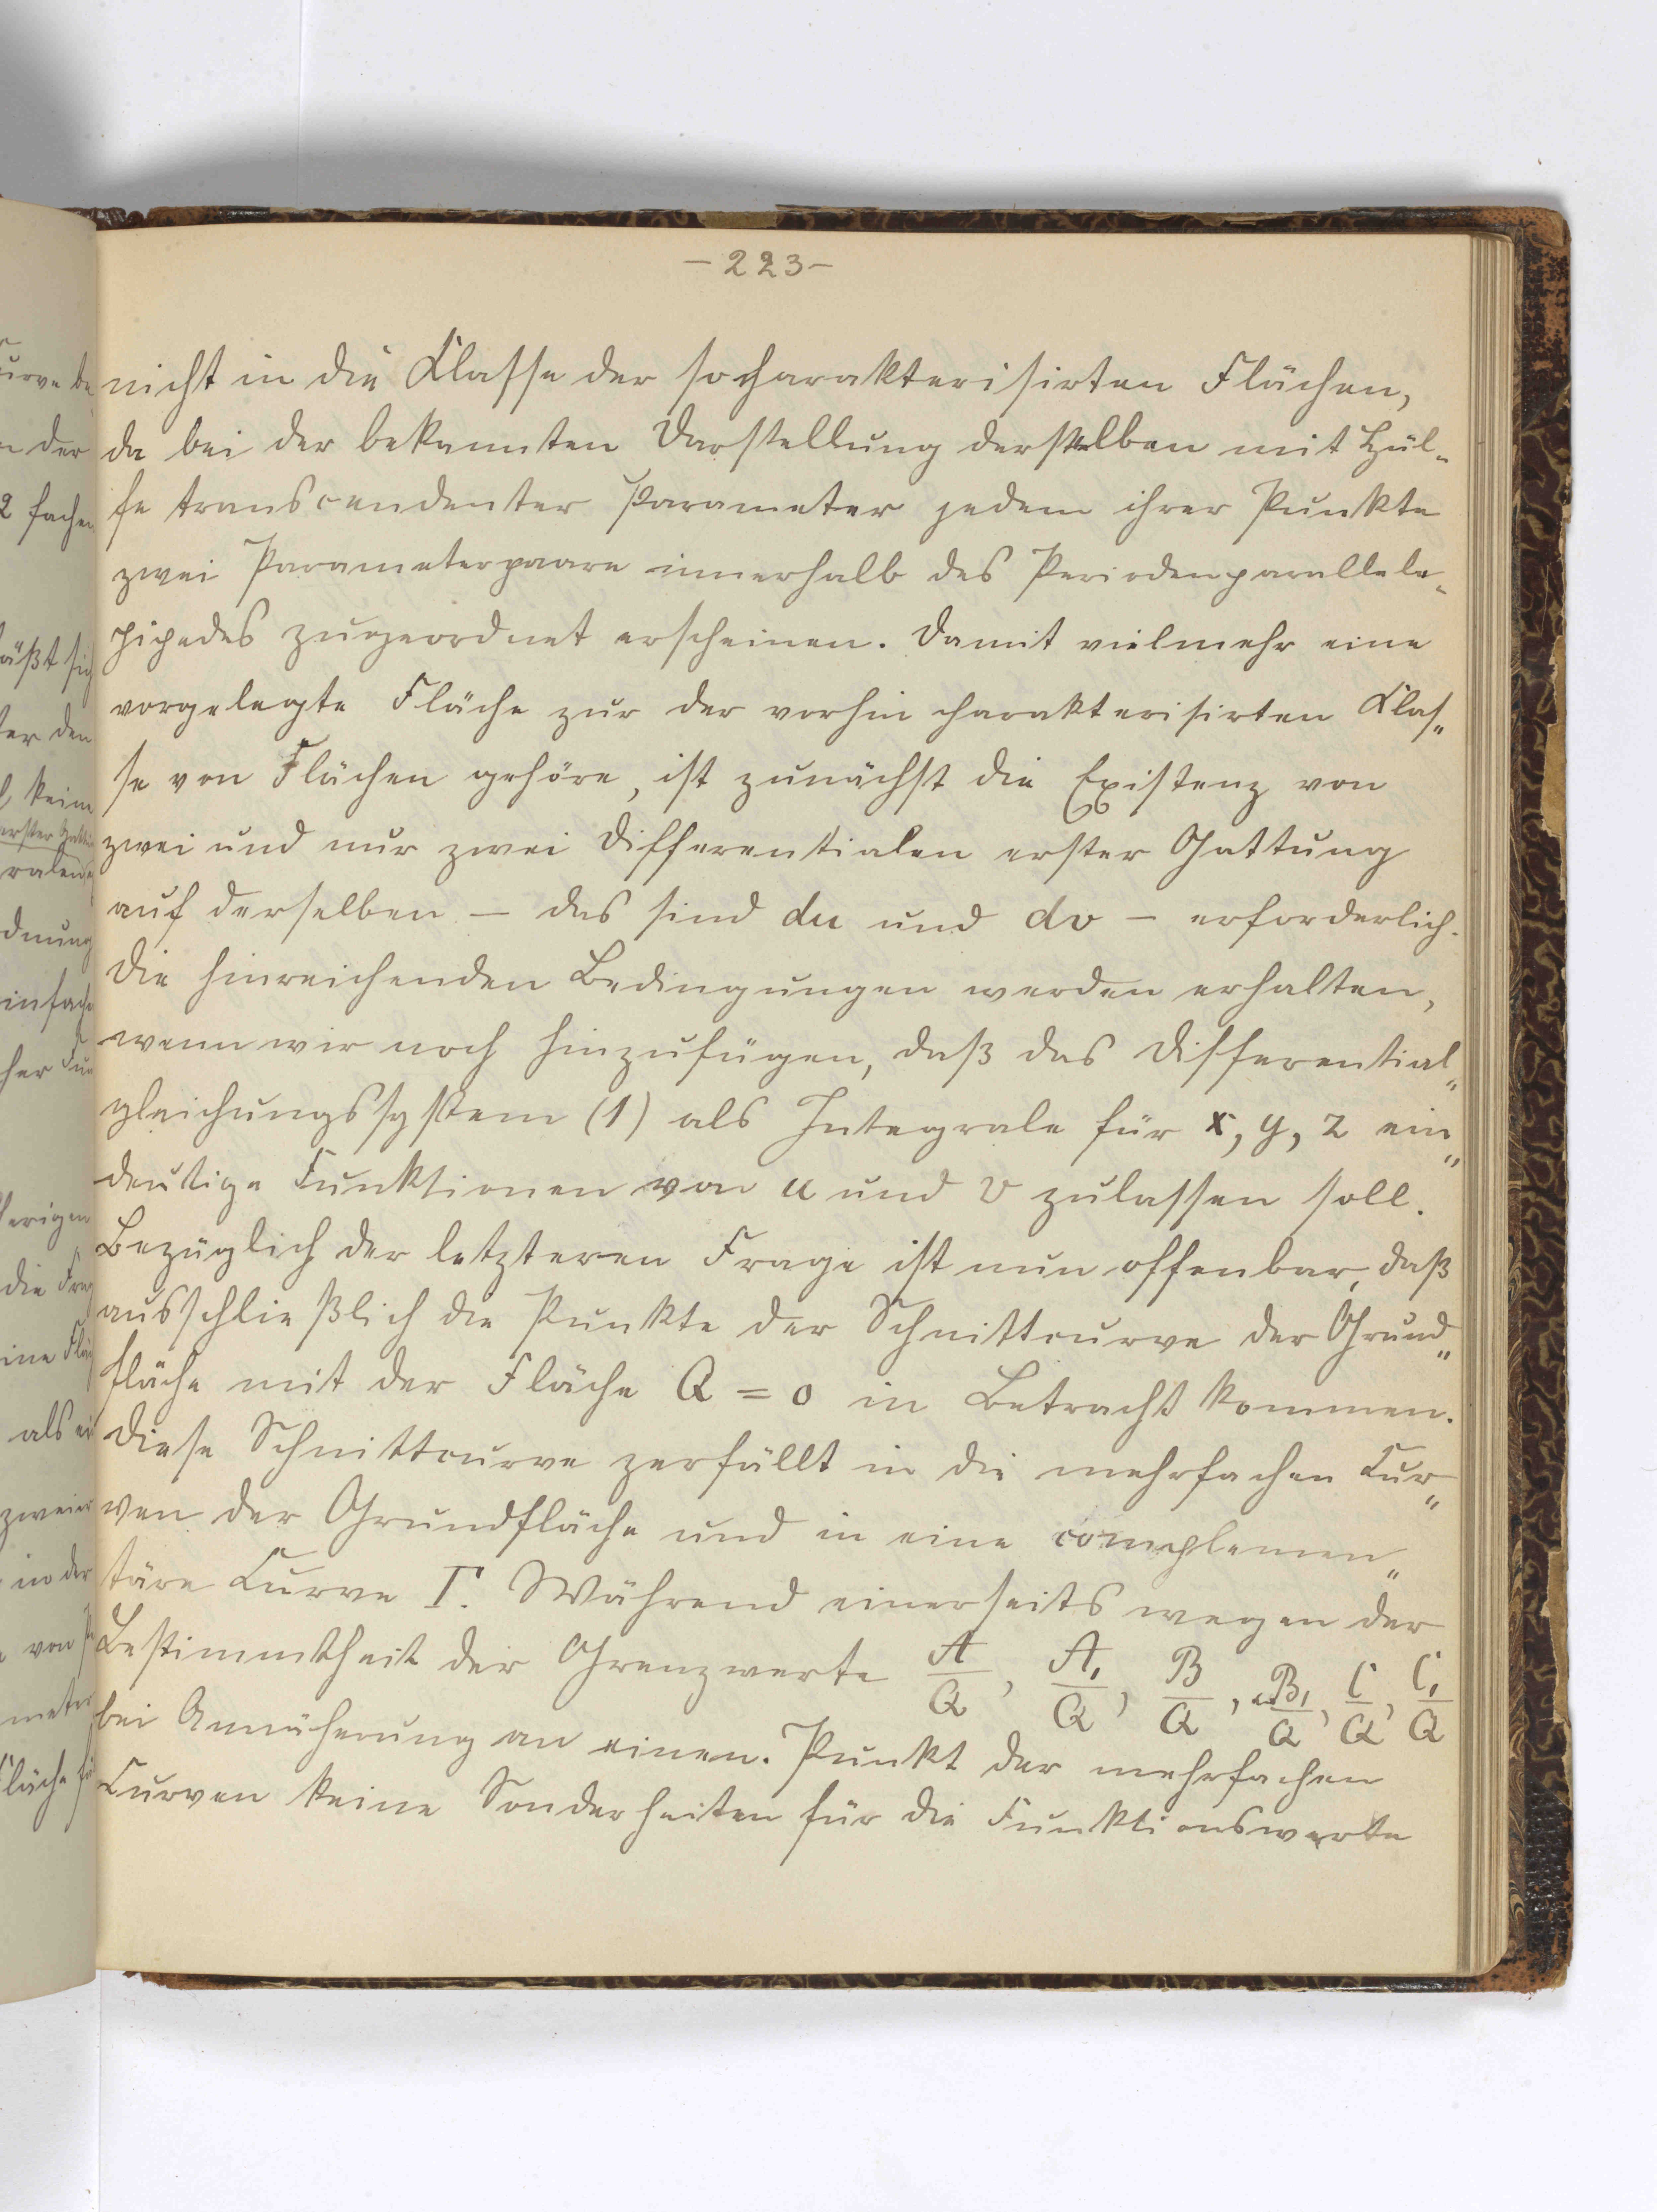 - 223 -
nicht in die Klasse der so charakterisirten Flächen,
da bei der bekannten Darstellung derselben mit Hül-
fe transcendenter Parameter jedem ihrer Punkte
zwei Parameterpaare innerhalb des Periodenparallele-
pipedes zugeordnet erscheinen. Damit vielmehr eine
vorgelegte Fläche zur der vorhin charakterisirten Clas-
se von Flächen gehöre, ist zunächst die Existenz von
zwei und nur zwei Differentialen erster Gattung
auf derselben – das sind du und dv – erforderlich.
Die hinreichenden Bedingungen werden erhalten,
wenn wir noch hinzufügen, daß das Differential-
gleichungssystem (1) als Integrale für x, y, z ein-
deutige Funktionen von u und v zulassen soll.
Bezüglich der letzteren Frage ist nun offenbar, daß
ausschließlich die Punkte der Schnittcurve der Grund-
fläche mit der Fläche Q = 0 in Betracht kommen.
Diese Schnittcurve zerfällt in die mehrfachen Cur-
ven der Grundfläche und in eine complemen-
täre Curve Γ. Während einerseits wegen der
Bestimmtheit der Grenzwerte A/Q, A₁/Q, B/Q, B₁/Q, C/Q, C₁/Q
bei Annäherung an einen Punkt der mehrfachen
Curven keine Sonderheiten für die Funktionswerte